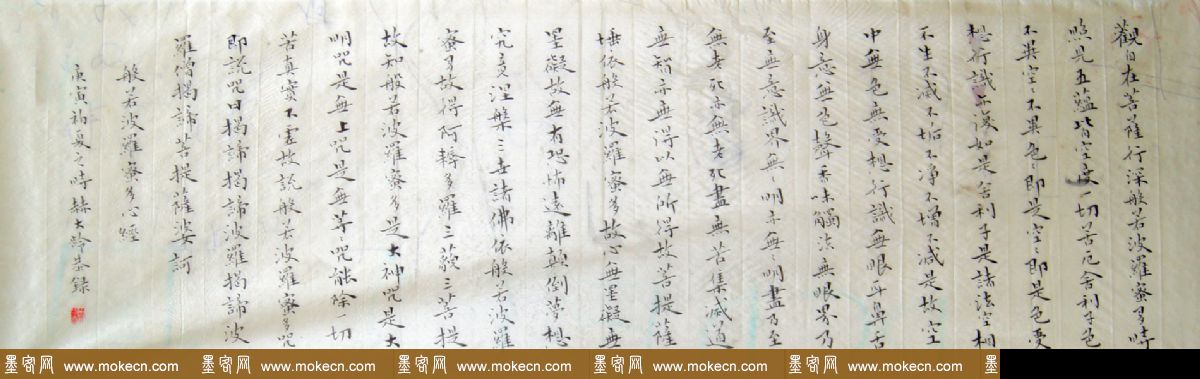 觀自在菩薩行深般若波羅蜜多時
照見五蘊皆空度一切苦厄舍利子色
不異空々不異色々即是空々即是色受
想行識亦復如是舍利子是諸法空相
不生不滅不垢不淨不增不減是故空
中無色無受想行識無眼耳鼻舌
身意無色聲香味觸法無眼界乃
至無意識界無々明亦無々明盡乃至
無老死亦無老死盡無苦集滅道
無智亦無得以無所得故菩提薩
埵依般若波羅蜜多故心無罣礙無
罣礙故無有恐怖遠離顛倒夢想
究竟涅槃三世諸佛依般若波羅
蜜多故得阿耨多羅三藐三菩提
故知般若波羅蜜多是大神咒是大
明咒是無上咒是無等咒能除一切
苦真實不虛故說般若波羅蜜多咒
即說咒曰揭諦揭諦波羅揭諦波
羅僧揭諦菩提薩婆訶
般若波羅蜜多心經
庚寅初夏之時赫大恭錄
墨客网 www.mokecn.com 墨客网 www.mokecn.com 墨客网 www.mokecn.com 墨客网 www.mokecn.com 墨客网 www.mokecn.com 墨客网 www.mokecn.com